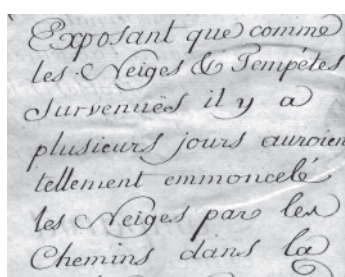 Exposant que comme
les Neiges & Tempétes
Survenuës il y a
plusieurs jours auroien
tellement emmoncelé
les Neiges par les
Chemins dans la